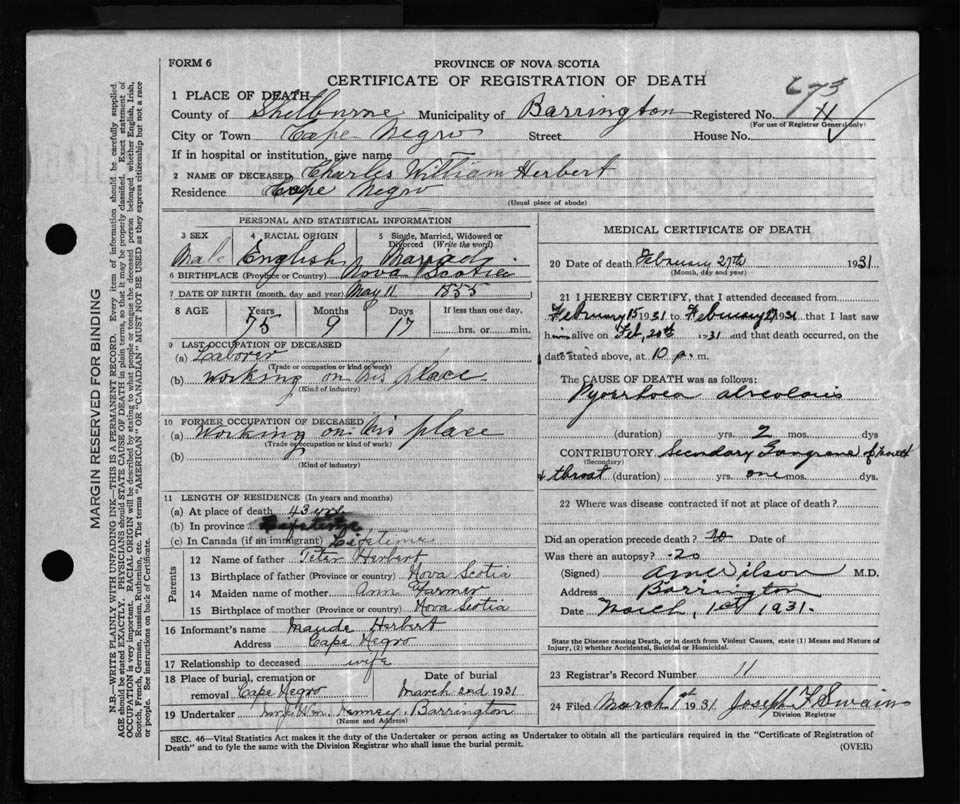 FORM 6
PROVINCE OF NOVA SCOTIA
CERTIFICATE OF REGISTRATION OF DEATH
673
1 PLACE OF DEATH—
County of Shelburne Municipality of Barrington Registered No.
(For use of Registrar General only)
City or Town Cape Negro Street House No.
If in hospital or institution, give name
2 NAME OF DECEASED Charles William Herbert
Residence Cape Negro
(Usual place of abode)
PERSONAL AND STATISTICAL INFORMATION
3 SEX 4 RACIAL ORIGIN 5 Single, Married, Widowed or Divorced (Write the word)
Male English Married
6 BIRTHPLACE (Province or Country) Nova Scotia
7 DATE OF BIRTH (month, day and year) May 11 1855
8 AGE Years Months Days If less than one day,
75 9 17 hrs. or min.
9 LAST OCCUPATION OF DECEASED
(a) Laborer
(Trade or occupation or kind of work)
(b) Working on his place
(Kind of industry)
10 FORMER OCCUPATION OF DECEASED
(a) Working on his place
(Trade or occupation or kind of work)
(b)
(Kind of industry)
11 LENGTH OF RESIDENCE (In years and months)
(a) At place of death 43 yrs
(b) In province
(c) In Canada (if an immigrant) Lifetime
Parents
12 Name of father Peter Herbert
13 Birthplace of father (Province or country) Nova Scotia
14 Maiden name of mother Ann Farmer
15 Birthplace of mother (Province or country) Nova Scotia
16 Informant's name Maude Herbert
Address Cape Negro
17 Relationship to deceased wife
18 Place of burial, cremation or removal Cape Negro Date of burial March 2nd 1931
19 Undertaker Barrington
(Name and Address)
MEDICAL CERTIFICATE OF DEATH
20 Date of death February 27th 1931
(Month, day and year)
21 I HEREBY CERTIFY, that I attended deceased from
February 15 1931 to February 27 1931 that I last saw
him alive on Feb, 1931 and that death occurred, on the
date stated above, at 10 p. m.
The CAUSE OF DEATH was as follows:
Pyorrhoea alveolaris
(duration) yrs. 2 mos. dys
CONTRIBUTORY Secondary Gangrene of mouth
(Secondary)
& throat (duration) one mos. dys.
22 Where was disease contracted if not at place of death?
Did an operation precede death? No Date of
Was there an autopsy? No
(Signed) M.D.
Address Barrington
Date March, 1st 1931.
State the Disease causing Death, or in death from Violent Causes, state (1) Means and Nature of Injury, (2) whether Accidental, Suicidal or Homicidal.
23 Registrar's Record Number 11
24 Filed March 1st 1931 Joseph F Swain
Division Registrar
SEC. 46—Vital Statistics Act makes it the duty of the Undertaker or person acting as Undertaker to obtain all the particulars required in the "Certificate of Registration of
Death" and to fyle the same with the Division Registrar who shall issue the burial permit. (OVER)
MARGIN RESERVED FOR BINDING
N.B.—WRITE PLAINLY WITH UNFADING INK—THIS IS A PERMANENT RECORD. Every item of information should be carefully supplied.
AGE should be stated EXACTLY. PHYSICIANS should STATE CAUSE OF DEATH in plain terms, so that it may be properly classified. Exact statement of
OCCUPATION is very important. RACIAL ORIGIN will be described by stating to what people or tongue the deceased person belonged whether English, Irish,
Scotch, French, German, Russian, Ruthenian, etc. The terms "AMERICAN" or "CANADIAN" MUST NOT BE USED as they express citizenship but not a race
or people. See instructions on back of Certificate.